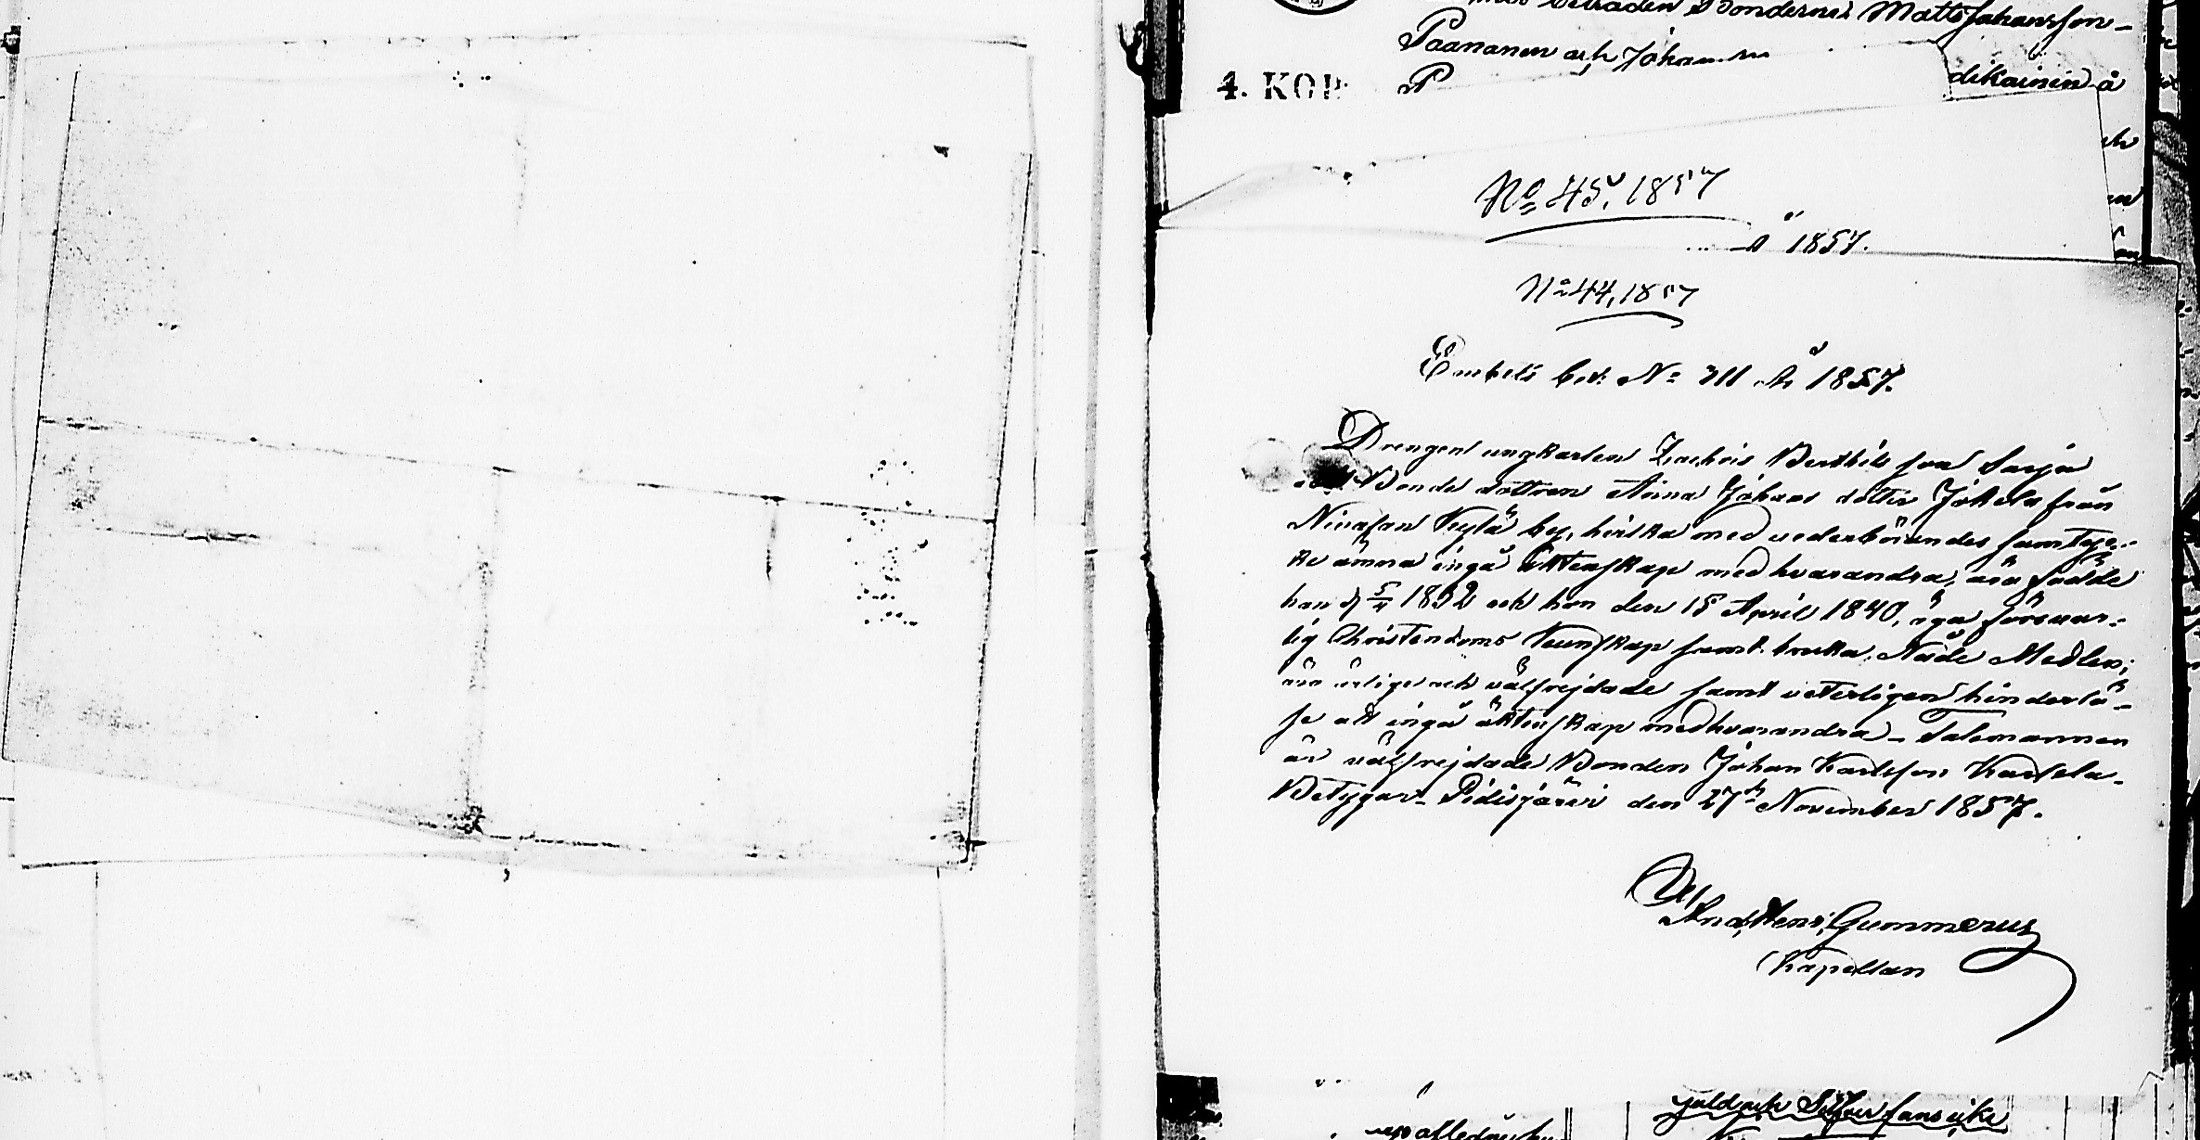 beträden Bönderne: Matts Johansson
Paananen och Johan
4. KOP. P dikainin å
ch
N:o 45, 1857
å 1857.
N:o 44, 1857
Embets bet: N:o 311 År 1857.
Drengen ungkarlen Zachris Berthils son Sarja
Bonde dottren Anna Johans dotter Jokela från
by, hvilka med vederbörandes samtyc-
ke ämna ingå äktenskap med hvarandra, äro födde
han d 5/4 1832 och hon den 15 April 1840, äga försvar-
lig Christendoms Kunskap samt bruka Nåde Medlen;
äro ärlige och välfrejdade samt veterligen hinderlö-
se att ingå äktenskap med hvarandra - Talemannen
är välfrejdade Bonden Johan Karlsson Karsela.
Betygar. Pidisjärvi den 27de November 1857.
And, Henr, Gummerus
Kapellan
guld och Silfver fans icke